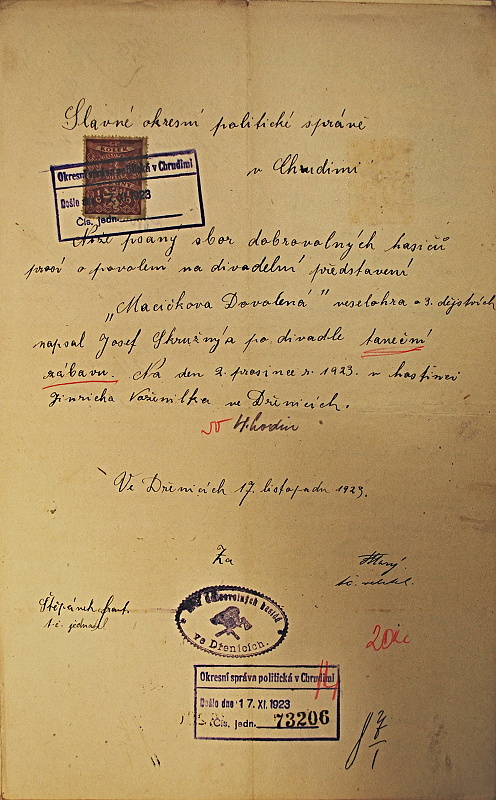 Slavné okresní politické správě
v Chrudimi
KOLEK
Okresní správa politická v Chrudimi
Došlo dne 1923
Čís. jedn.
Níže psaný sbor dobrovolných hasičů
prosí o povolení na divadelní představení
„Macíčkova Dovolená" veselohra o 3. dějstvích
napsal Josef Skružný a po divadle taneční
zábavu. Na den 2. prosince r. 1923. v hostinci
Jindřicha Važenilka ve Dřenicích.
v 4. hodin
Ve Dřenicích 17. listopadu 1923.
Za
Starý.
t.č. velitel.
Štěpánek
t.č. jednatel
Sbor dobrovolných hasičů
ve Dřenicích.
Okresní správa politická v Chrudimi
Došlo dne 17. XI. 1923
Čís. jedn. 73206